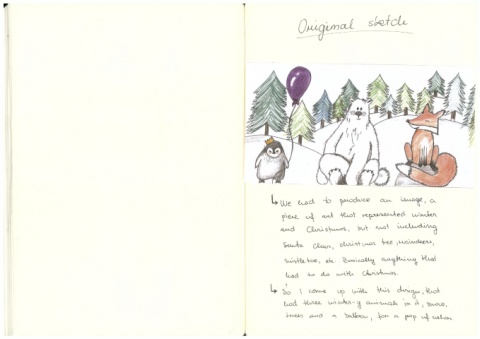 Original sketch
↳ We had to produce an image, a
piece of art that represented winter
and Christmas, but not including
Santa Claus, christmas tree, reindeers,
mistletoe, etc. Basically anything that
had to do with Christmas.
↳ So I came up with this design, that
had three winter-y animals in it, snow,
trees and a balloon, for a pop of colour